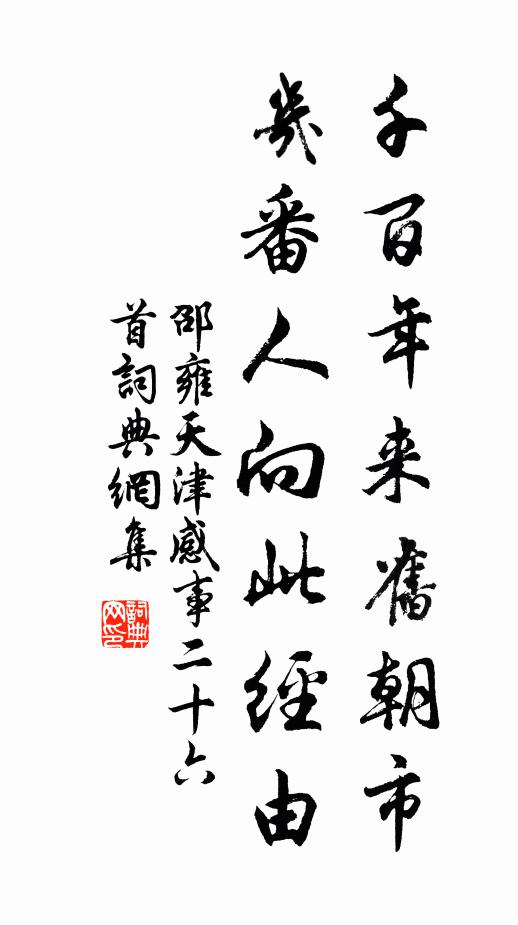 千百年来舊朝市
幾番人向此經由
邵雍天津感事二十六
首詞典網集
詞典網印